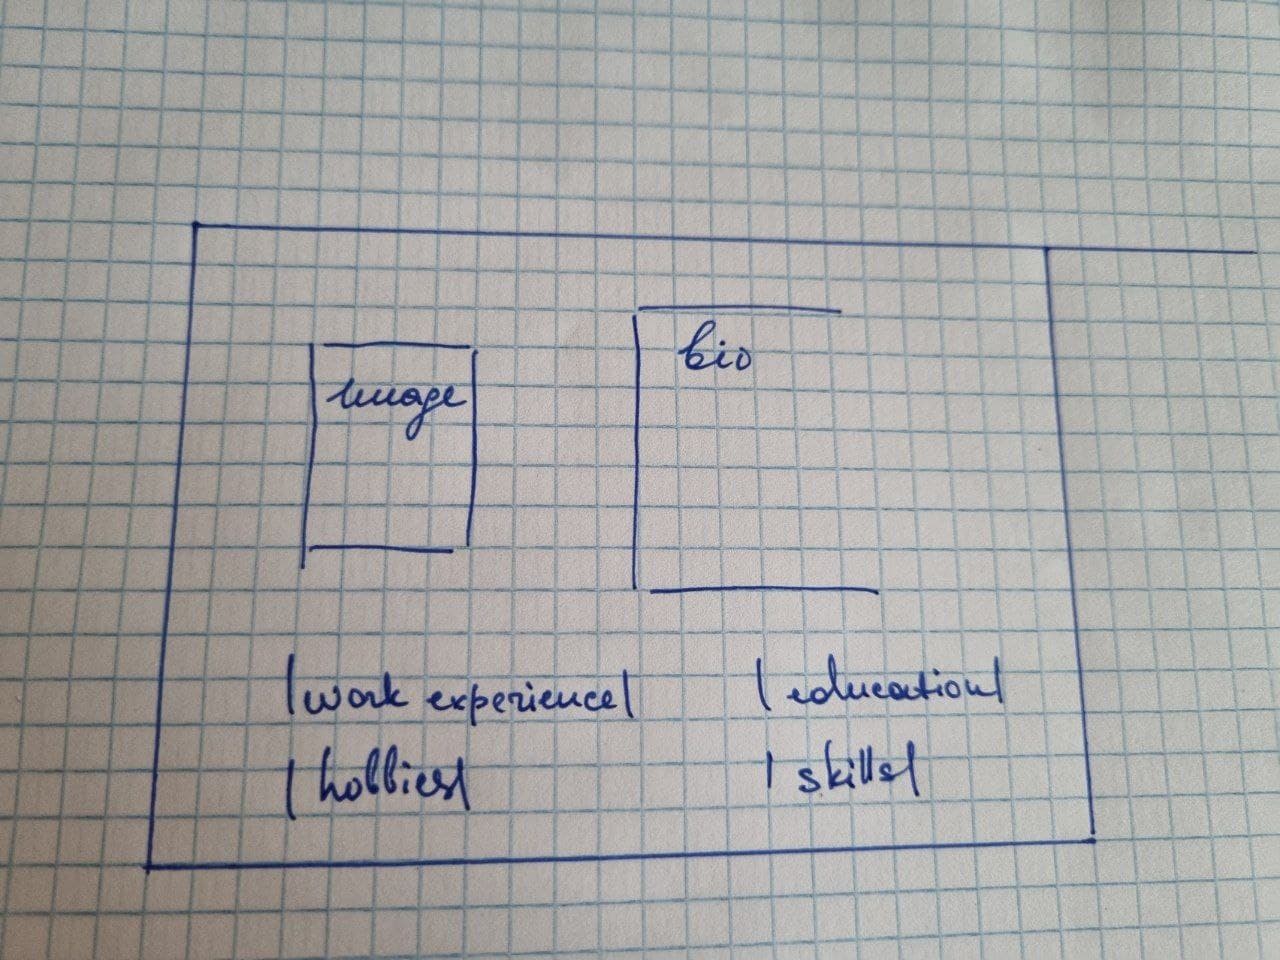 image
bio
work experience
education
hobbies
skills